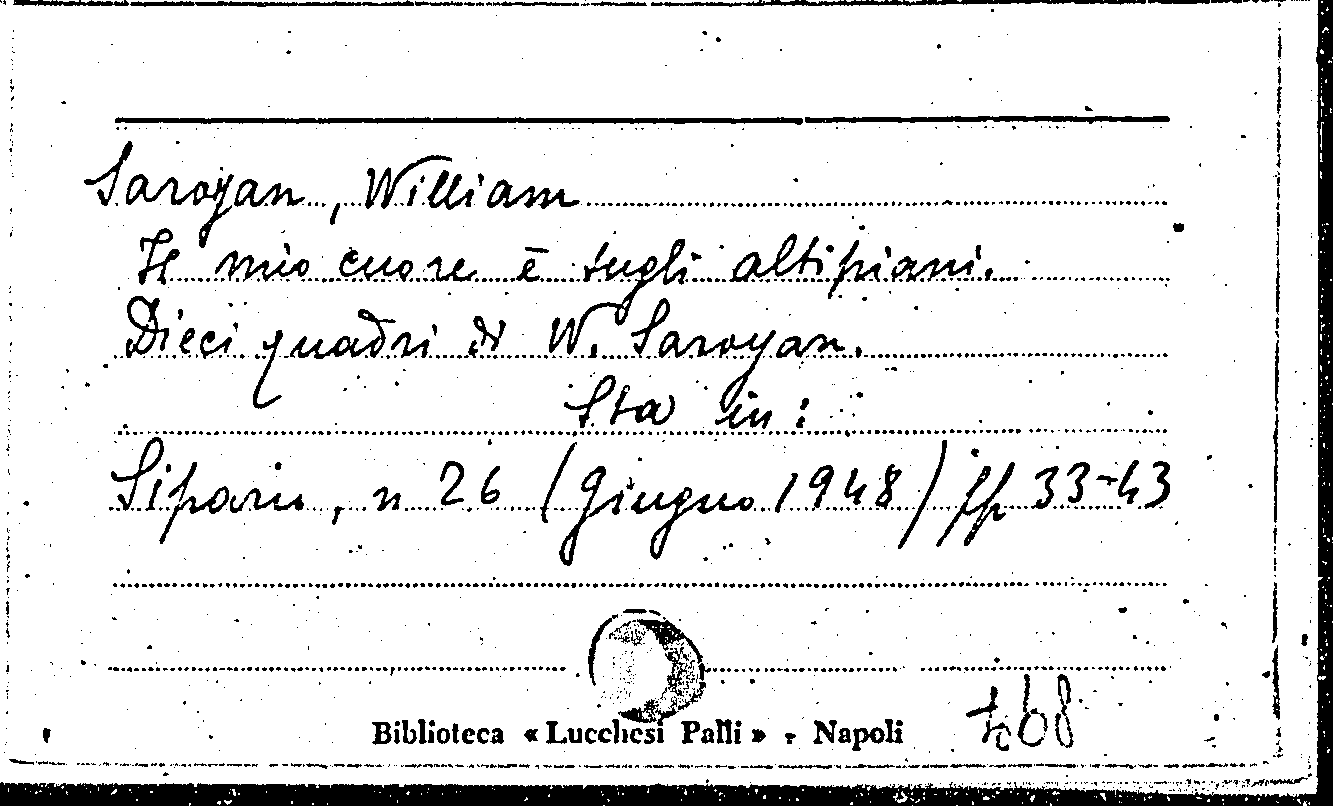 Saroyan, William
Il mio cuore è sugli altipiani.
Dieci quadri di W. Saroyan.
Sta in:
Sipario, n 26 (Giugno 1948) pp 33-43
Biblioteca « Lucchesi Palli » - Napoli